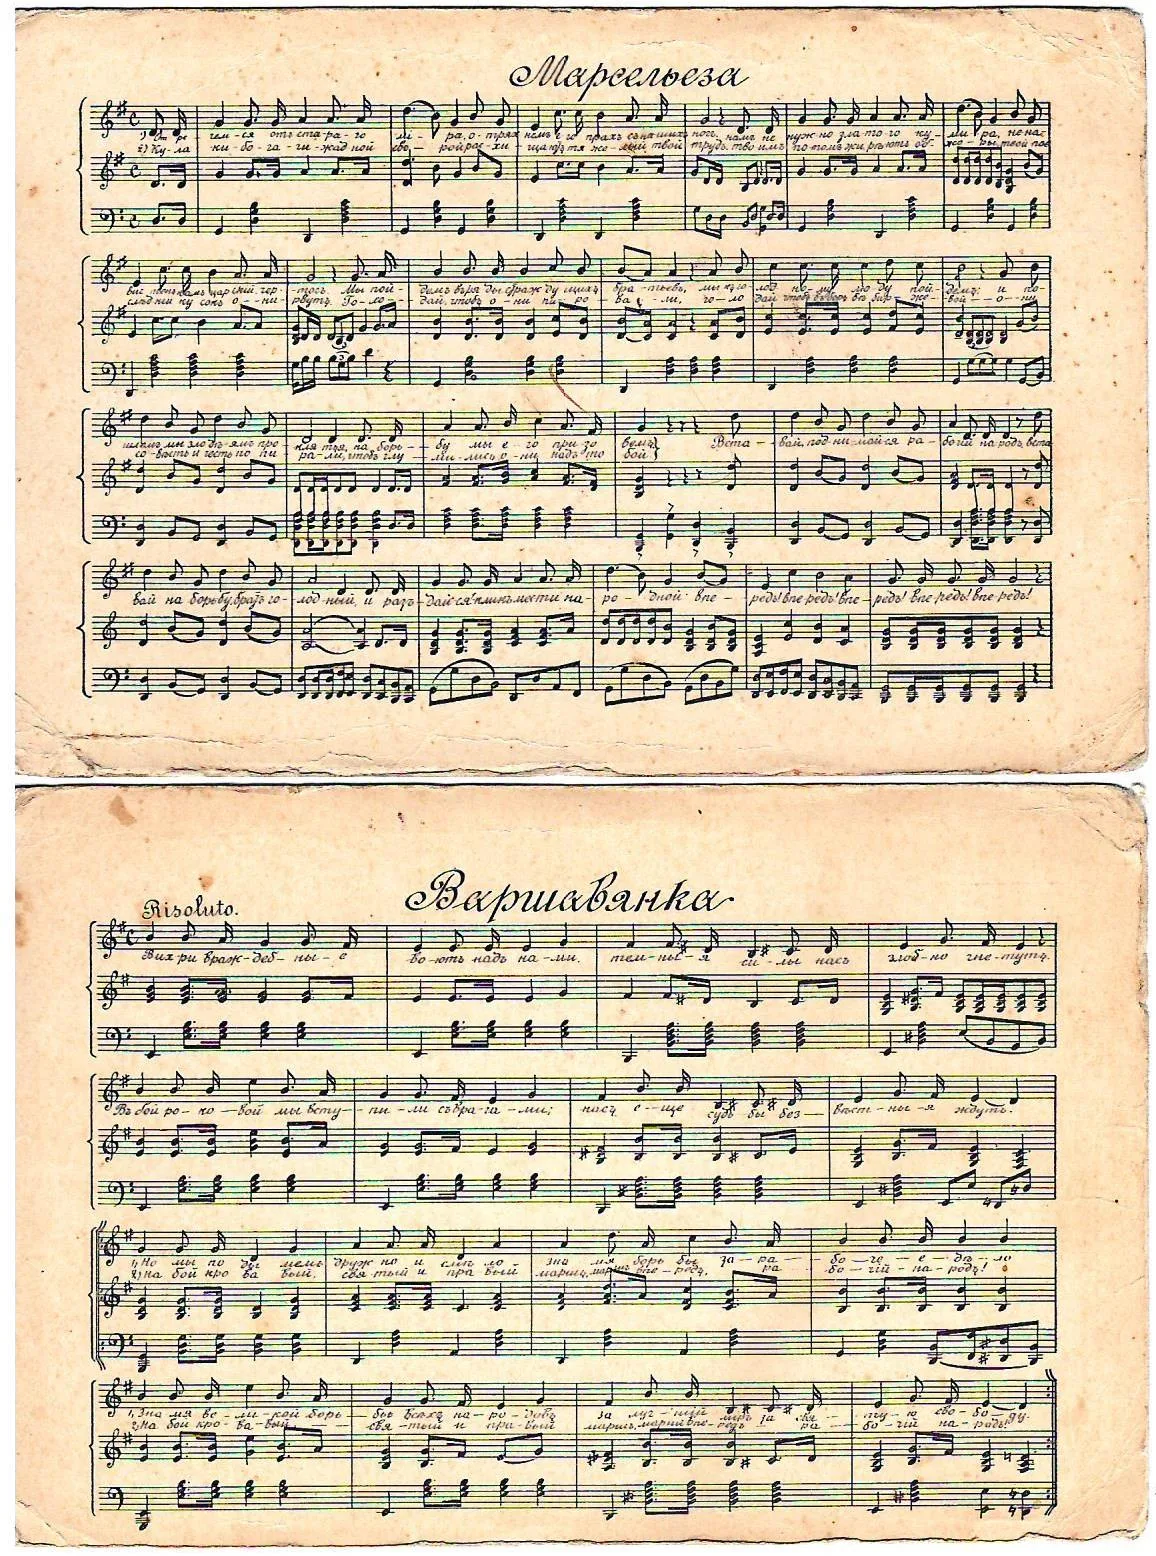 Марсельеза
1) От ре-чем-ся отъ ста-ра-го ми-ра, о-трях немъ е-го прахъ съ на-шихъ ногъ. намъ не нуж-но зла-то-го ку-ми-ра, не на-
2) Ку-ла ки-бо-га-чи-жад ной сво-рой рас-хи-ща-ютъ тя же-лый твой трудъ. тво имъ по томъ жи-рѣ-ютъ об-жо-ры, твой пос
намъ цар-скій чер-тогъ. Мы пой-демъ въ ря-ды страж-ду-щихъ бра-тьевъ, мы къ го-лод но-му лю-ду пой-демъ; и по
лѣд ній ку сокъ о-ни-рвутъ. Го-ло-дай, чтобъ о-ни пи-ро ва-ли, го-ло дай чтобъ въ бир-же-вой-о-ни
шлемъ мы зло дѣ-ямъ про-кля тья, на борь-бу мы е-го при зо вемъ. Вста-вай, под-ни-май-ся ра-бочій на-родъ, вста
со-вѣсть и честь по пи рали, чтобъ глу-ми-лись о-ни надъ то бой
вай на борьбу, братъ го-лод-ный, и раз-дай-ся кликъ мести на-ро-дной! впе-редъ! впе редъ! впе-редъ! впе-редъ! впе-редъ!
Варшавянка
Risoluto.
Вих ри враж-деб-ны-е во-ютъ надъ на-ми. тем-ны-я си-лы насъ злоб-но гне-тутъ.
Въ бой ро-ко-вой мы всту-пи-ли съ вра-га-ми; насъ е-ще судь-бы без-вѣст-ны-я ждутъ.
1) Но мы по ды мемъ друж но и смѣ ло зна мя борь бы за-ра-бо-че-е-дѣ-ло
2) на бой кро ва вый, свя тый и пра вый марш, марш впе-редъ, ра бо-чій-на-родъ!
1) Зна мя ве-ли-кой борь-бы всѣхъ на-ро-довъ за луч-шій миръ за свя-ту-ю сво-бо-ду.
2) на бой кро-ва-вый свя-тый и правый марш, марш впе-редъ ра-бо-чій на-родъ!